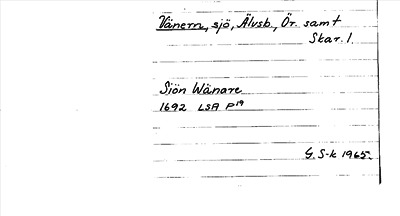 Vänern, sjö, Älvsb., Ör. samt
Skar. l.
Sjön Wänare
1692 LSA P19
G. S-k 1965.